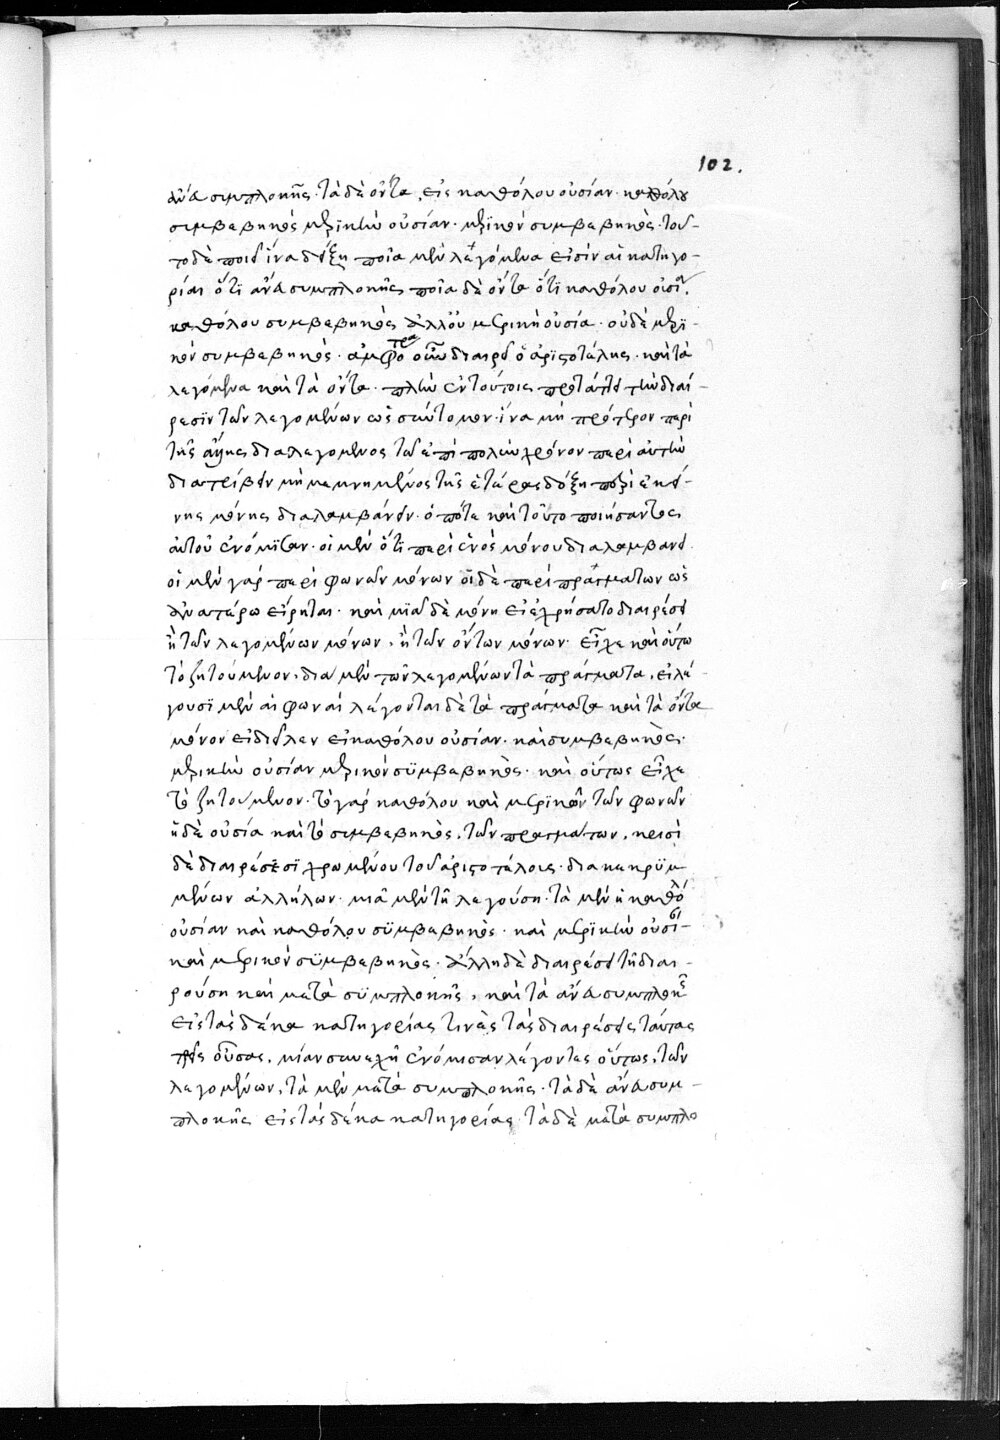 102.
ἄνευ συμπλοκῆς· τὰ δὲ ὄντα, εἰς καθόλου οὐσίαν· καθόλου
συμβεβηκός μερικὴν οὐσίαν· μερικόν συμβεβηκὸς· τοῦ-
το δὲ ποιεῖ ἵνα δείξῃ ποῖα μὲν λεγόμενα εἰσίν αἱ κατηγο-
ρίαι ὅτι ἄνευ συμπλοκῆς ποῖα δὲ ὄντα ὅτι καθόλου οὐσία.
καθόλου συμβεβηκὸς ἀλλ' οὐ μερικὴ οὐσία· οὐδὲ μερι-
κόν συμβεβηκός· ἀμφότερα οὖν διαιρεῖ ὁ ἀριστοτέλης· καὶ τὰ
λεγόμενα καὶ τὰ ὄντα· πλὴν ἐν τούτοις προτάττει τὴν διαί-
ρεσιν τῶν λεγομένων ὡς σύντομον· ἵνα μὴ πρότερον περὶ
τῆς διαλεγόμενος τῶ ἐπὶ πολὺν χρόνον περὶ αὐτὴν
διατρίβειν μὴ μεμνημένος τῆς ἑτέρας δόξῃ περὶ ἐκεί-
νης μόνης διαλαμβάνειν· ὁπότε καὶ τοῦτο ποιήσαντος
αὐτοῦ ἐνόμισαν· οἱ μὲν ὅτι περὶ ἑνὸς μόνου διαλαμβάνει.
οἱ μὲν γάρ περὶ φωνῶν μόνων οἱ δὲ περὶ πραγμάτων ὡς
ἀνωτέρω εἴρηται· καὶ μιᾶ δὲ μόνῃ εἰ ἐχρήσατο διαιρέσει
ἢ τῶν λεγομένων μόνων, ἢ τῶν ὄντων μόνων· εἶχε καὶ οὕτω
τὸ ζητούμενον, διὰ μὲν τῶν λεγομένων τὰ πράγματα, εἰ λέ-
γουσι μὲν αἱ φωναί λέγονται δὲ τὰ πράγματα καὶ τὰ ὄντα
μόνον εἰ διεῖλεν εἰ καθόλου οὐσίαν· καὶ συμβεβηκὸς·
μερικὴν οὐσίαν μερικόν συμβεβηκὸς· καὶ οὕτως εἶχε
τὸ ζητούμενον· τὸ γάρ καθόλου καὶ μερικὸν τῶν φωνῶν
ἡ δὲ οὐσία καὶ τὸ συμβεβηκὸς, τῶν πραγμάτων,
δὲ διαιρέσεσι χρωμένου τοῦ ἀριστοτέλους· διακεκριμ
μένων ἀλλήλων· μιᾶ μὲν τῇ λεγούσῃ· τὰ μὲν ἢ καθόλου
οὐσίαν καὶ καθόλου συμβεβηκὸς· καὶ μερικὴν οὐσίαν
καὶ μερικόν συμβεβηκὸς· ἄλλη δὲ διαιρέσει τῇ διαι-
ρούσῃ καὶ κατὰ συμπλοκῆς, καὶ τὰ ἄνευ συμπλοκῆς
εἰς τὰς δέκα κατηγορίας τινὲς τὰς διαιρέσεις ταύτας
τρεῖς οὔσας, μίαν συνεχῆ ἐνόμισαν λέγοντες οὕτως, τῶν
λεγομένων, τὰ μὲν κατὰ συμπλοκῆς· τὰ δὲ ἄνευ συμ-
πλοκῆς εἰς τὰς δέκα κατηγορίας τὰ δὲ κατὰ συμπλο